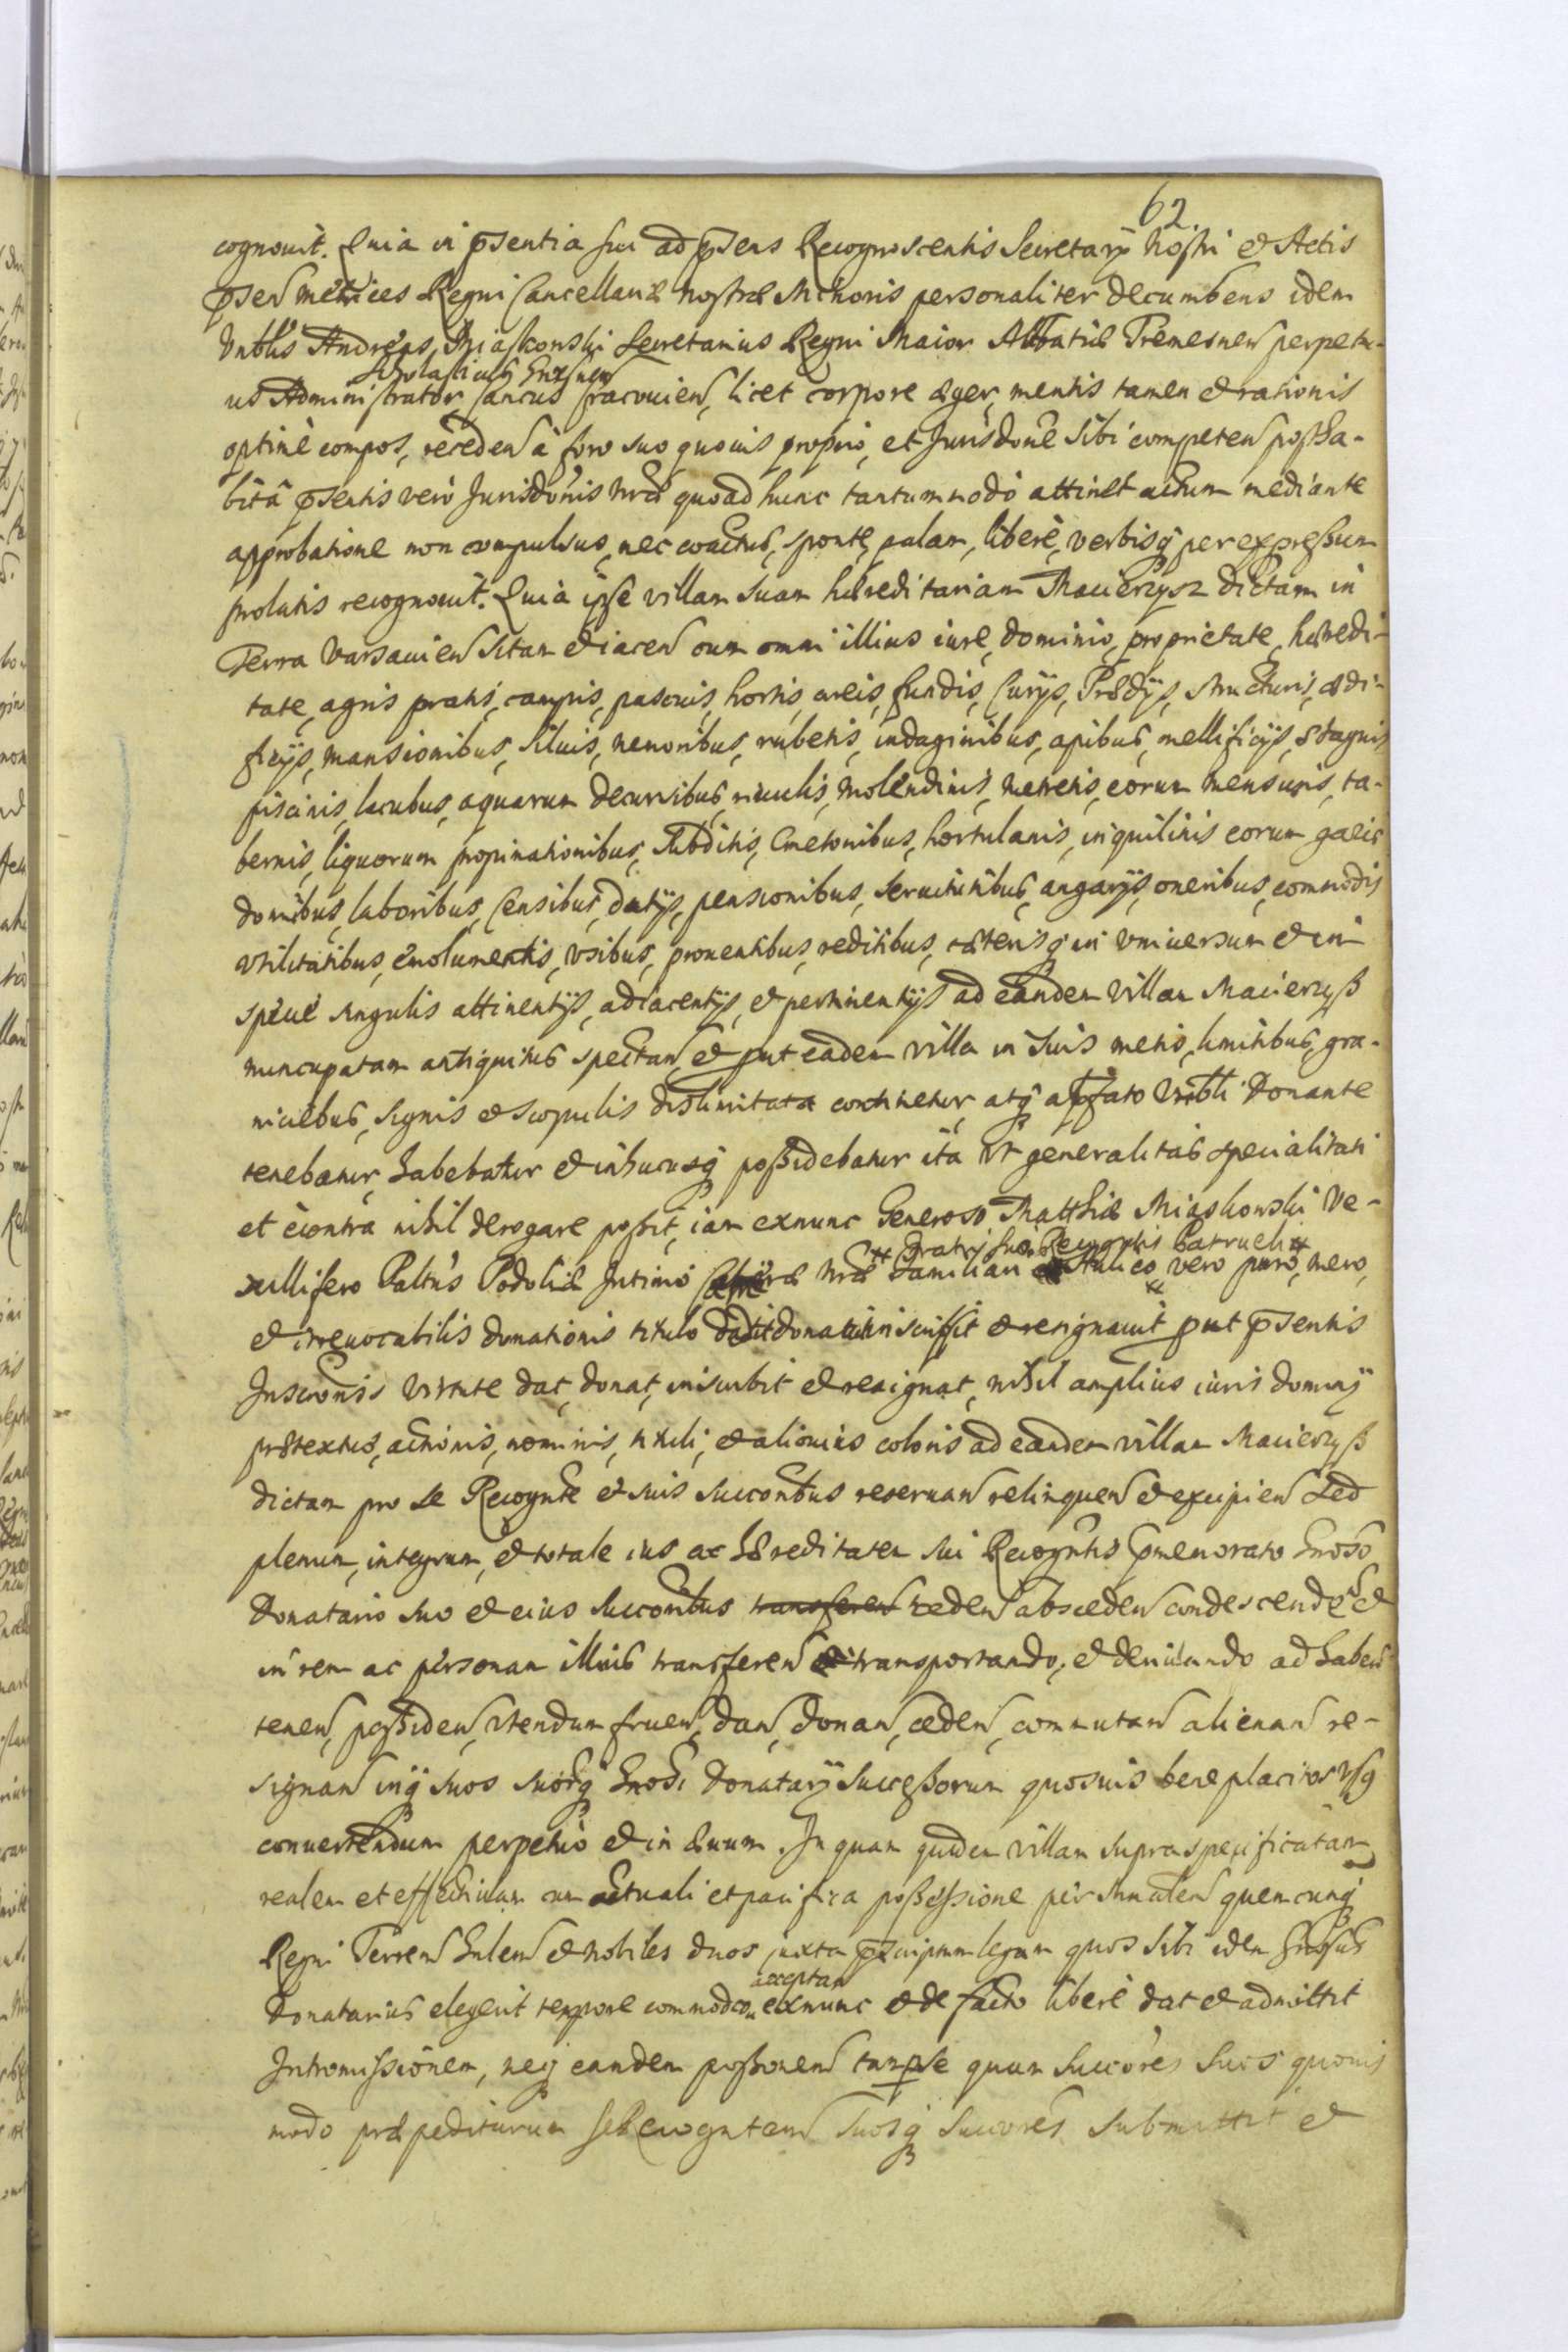 62
cognouit. Quia in psentia sui ad psens Recognoscentis Secretarÿ Nostri et Actis
psen metrices Regni Cancellariæ nostræ Minoris personaliter decumbens idem
Vnblis Andreas Miaskowski Secretarius Regni Maior Abbatiæ Tremesnen perpetu-
Scholasticus Gnesnen
us Administrator Cancus Cracouien, licet corpore æger, mentis tamen et rationis
optimè compos, receden à foro suo quouis proprio, et Jurisdone sibi competen posthа-
bitâ psentis verò Jurisdonis nræ quo ad hunc tantummodo attinet actum mediante
approbatione non compulsus, nec coactus, sponte, palam, liberè, verbisq per expressum
prolatis recognouit. Quia ipse villam suam hæreditariam Macierzysz dictam in
Terra Varsauien sitam et iacen cum omni illius iure, dominio, proprietate, hæredi-
tate, agris pratis, campis, pascuis, hortis, areis, fundis, Curÿs, Prædÿs, structuris, ædi-
ficÿs, mansionibus, siluis, nemoribus, rubetis, indaginibus, apibus, mellificÿs, stagnis
piscinis, lacubus, aquarum decursibus, riuulis, molendinis, metretis, eorum mensuris, ta-
bernis, liquorum propinationibus, Subditis, Cmetonibus, hortulanis, inquilinis eorum gaeis
domibus, laboribus, Censibus, datÿs, pensionibus, seruitutibus, angarÿs, oneribus, commodis
vtilitatibus, emolumentis, vsibus, prouentibus, reditibus, cæterisq in vniuersum et in
speue singulis attinentÿs, adiacentÿs, et pertinentÿs ad eandem villam Macierzyß
nuncupatam antiquitus spectan et put eadem villa in suis metis, limitibus, gra-
niciebus, signis et scopulis dislimitata continetur atq a pfato Vnbli Donante
tenebatur, habebatur et in hucusq possidebatur ita vt generalitas specialitati
et è contra nihil derogare possit, iam exnunc Generoso Matthiæ Miaskowski Ve-
Fratri suo Recogntis Patrueli
xillifero Paltus Podoliæ Intimo nræ Familiari Aulico vero puro, mero,
et irreuocabilis donationis titulo dedit donauit inscripsit et resignauit put psentis
Inscronis virtute dat, donat, inscribit et resignat, nihil amplius iuris dominÿ
prætextus, actionis, nominis, tituli, et alicuius coloris ad eandem villam Macierzyß
dictam pro se Recognte et suis succoribus reseruan relinquen et excipien Sed
plenum, integrum, et totale ius ac hæreditatem sui Recogntis pmemorato Gnoso
Donatario suo et eius succoribus transferen ceden absceden condescenden et
in rem ac personam illius transferen et transportando, et deriuando ad haben
tenen, possiden, vtendum fruen, dan, donan, ceden, commutan alienan re-
signan inq suos suorq Gnosi Donatarÿ successorum quosuis beneplacitos vsq
conuertendum perpetuò et in æuum. In quam quidem villam supraspecificatam
realem et effectiuam cum actuali et pacifica possessione per Ministerialen quemcunq
Regni Terren Gnlem et nobiles duos iuxta præscriptum legum quos sibi idem Gnosus
acceptan
Donatarius elegerit tempore commodo, exnunc et de facto liberè dat et admittit
Intromissionem, neq eandem possonem tam pse quam succores suos quouis
modo præpediturum se Recogntem suosq succores submittit et